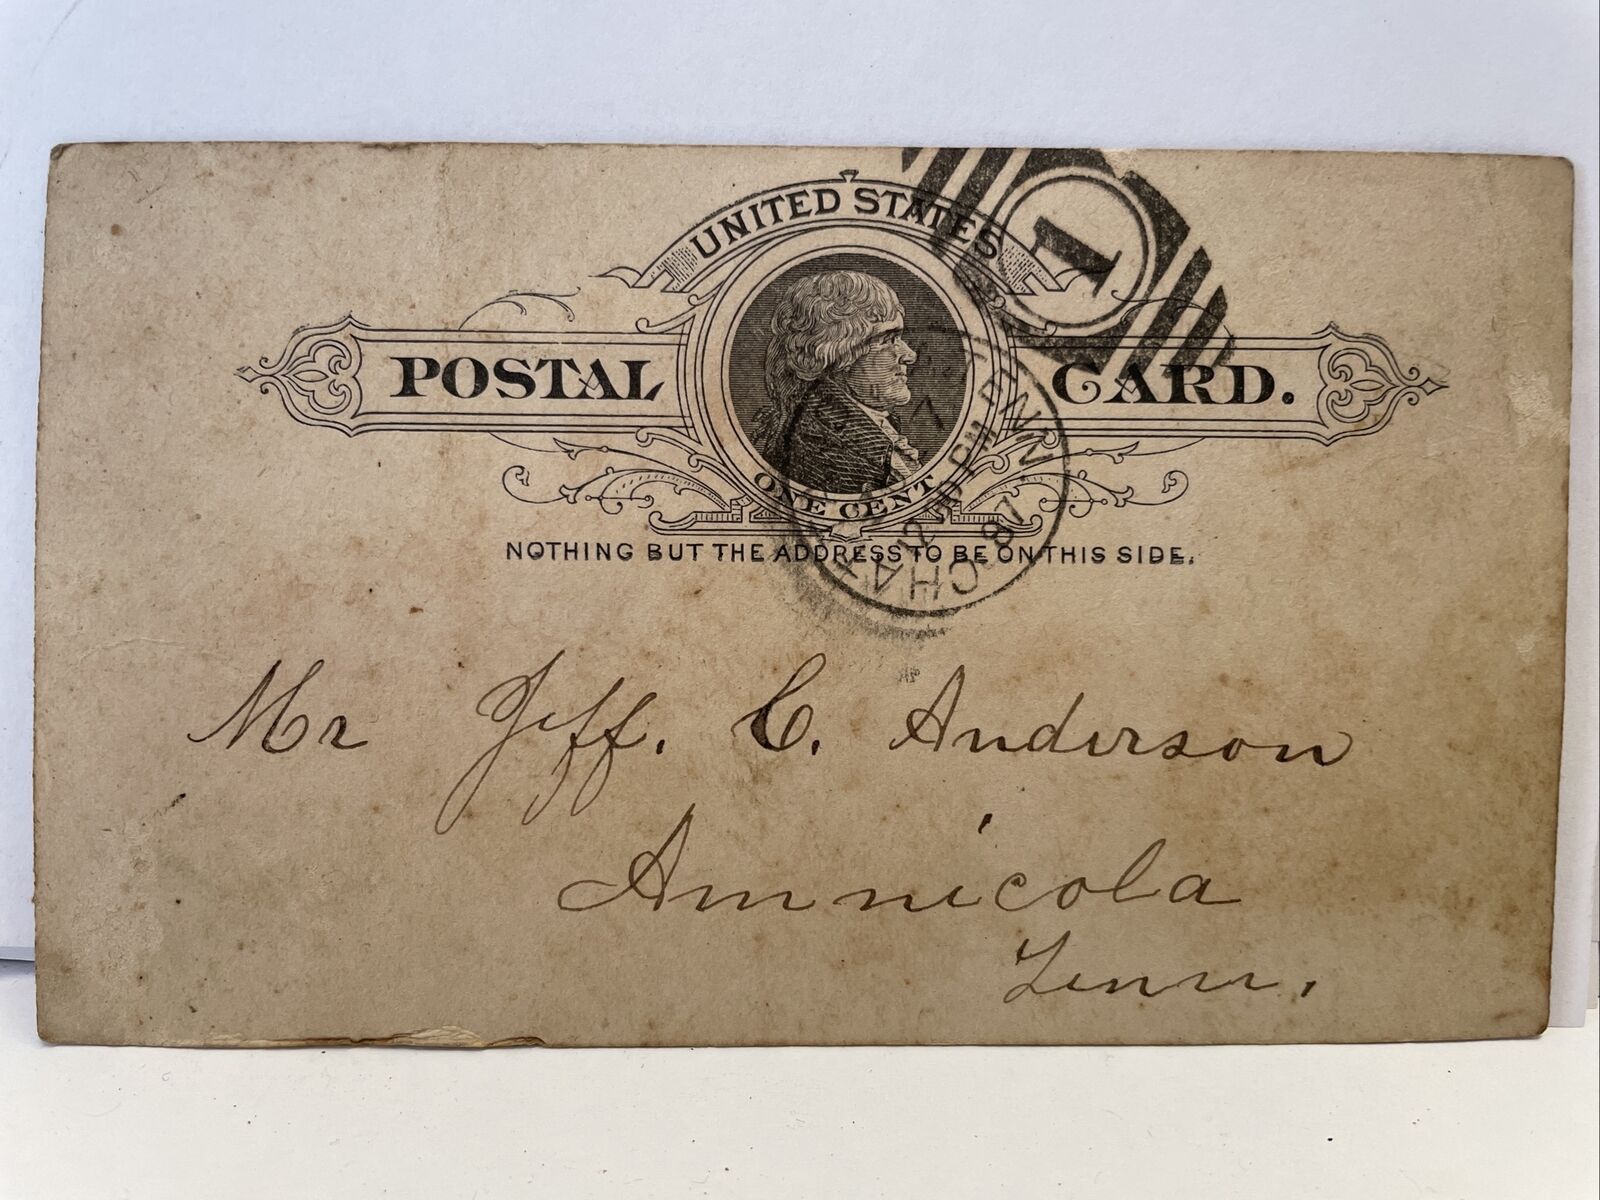 UNITED STATES
POSTAL CARD.
ONE CENT
NOTHING BUT THE ADDRESS TO BE ON THIS SIDE.
1
TENN.
PM
87
Mr Jeff. C. Anderson
Amnicola
Tenn.